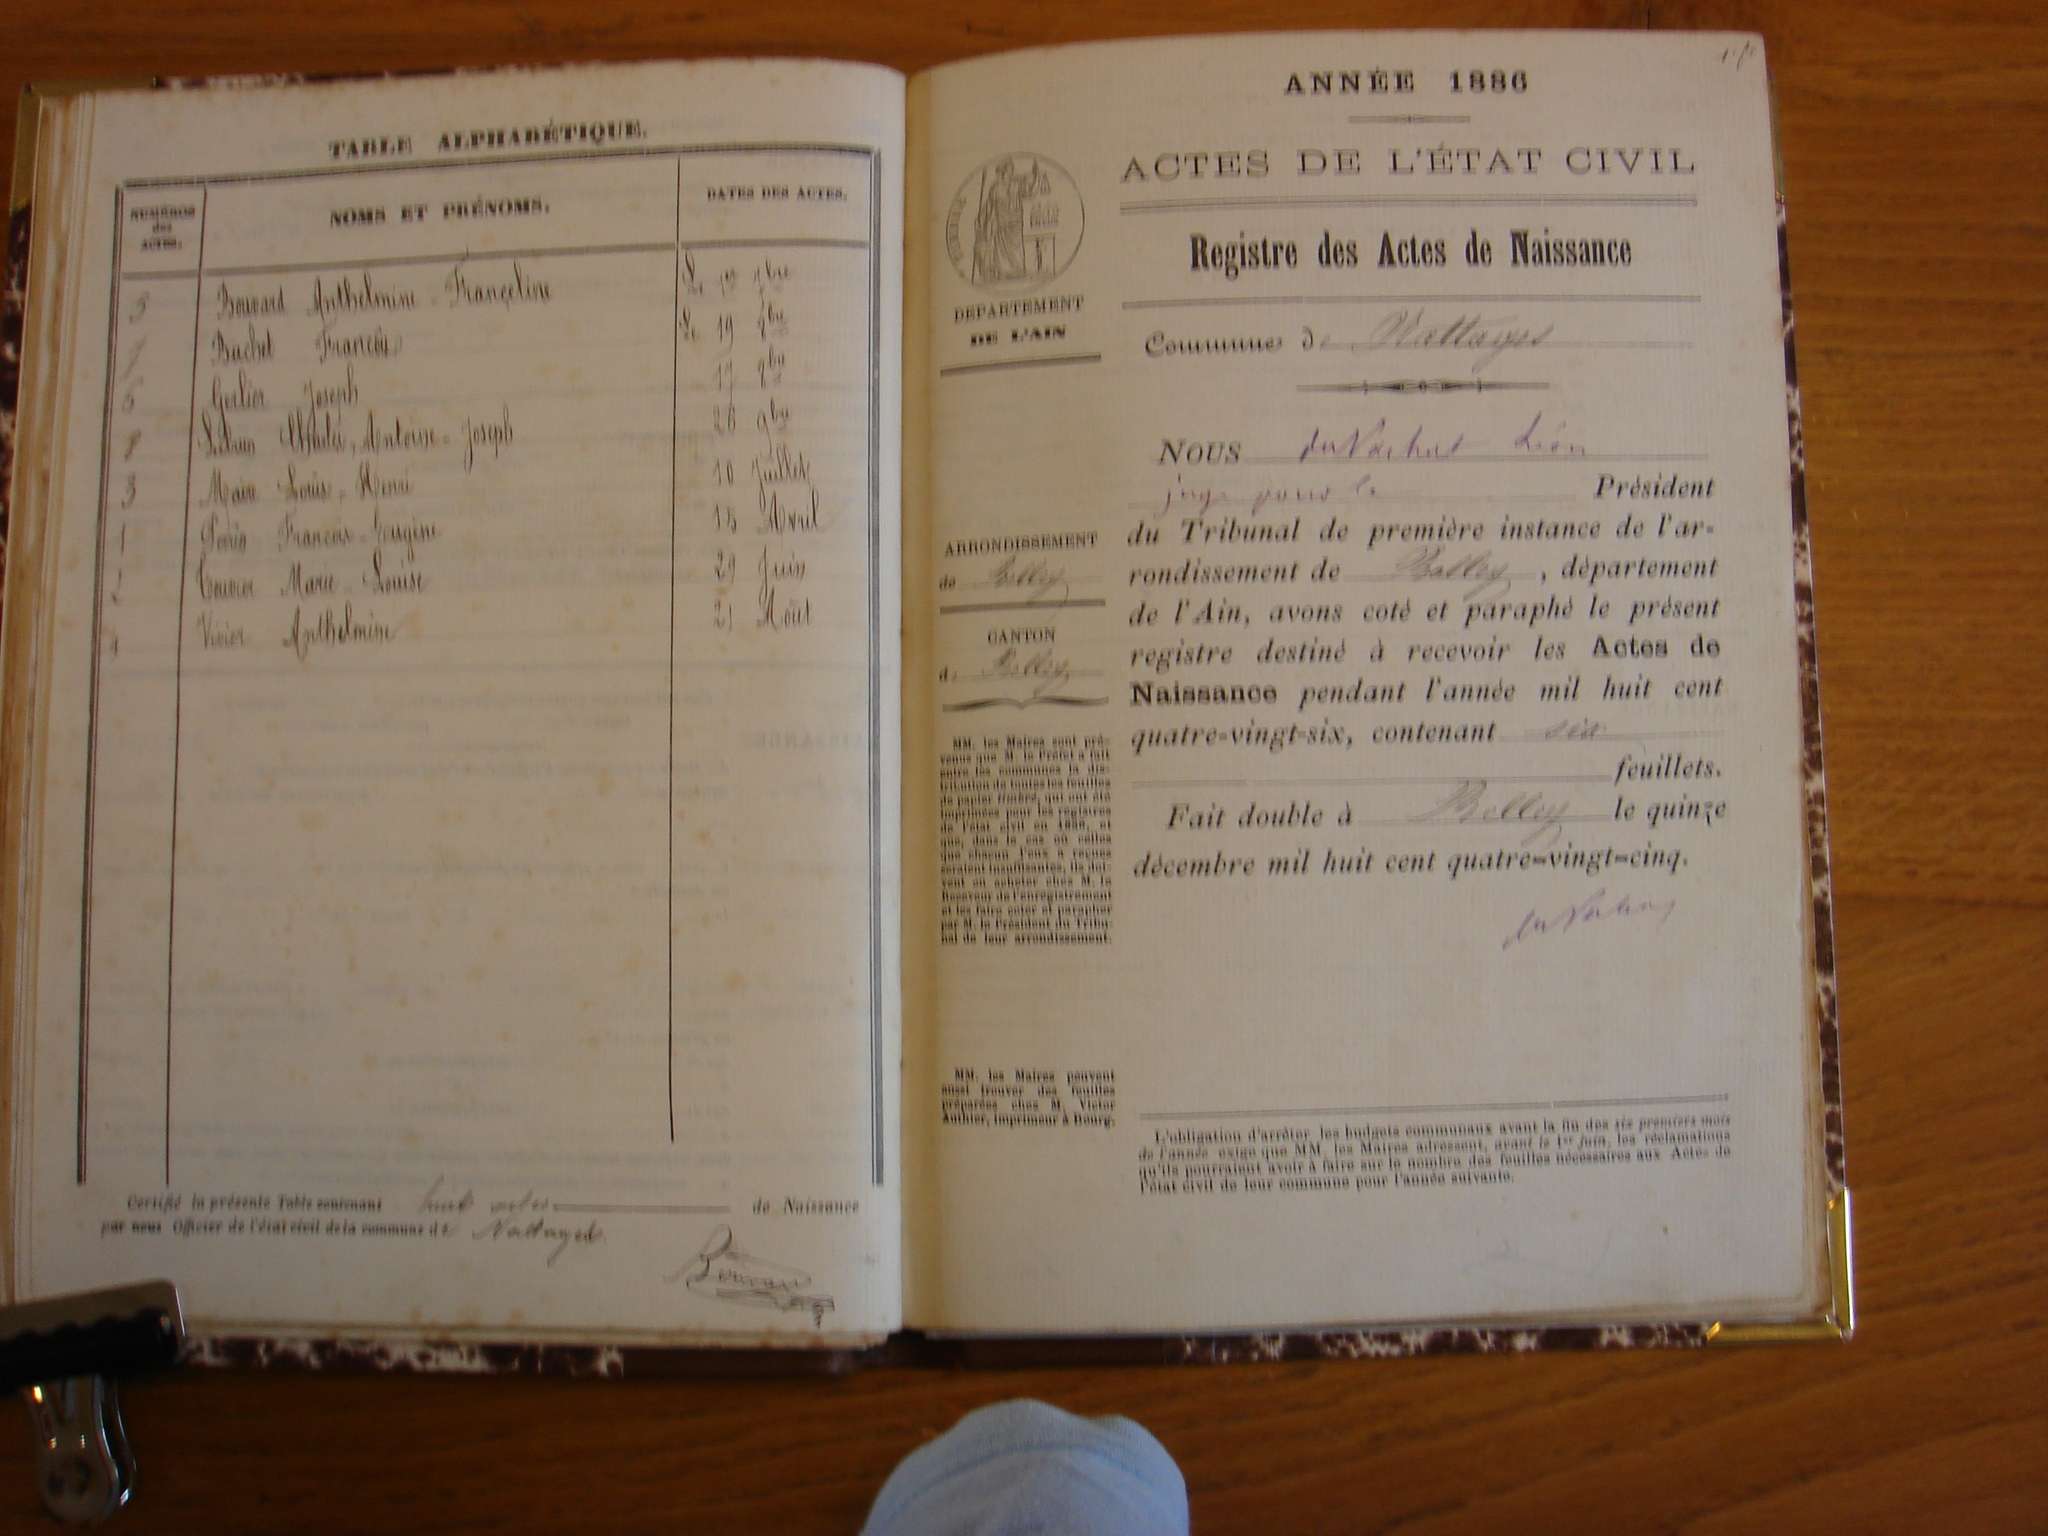 TABLE ALPHABÉTIQUE.
NUMÉROS
des
ACTES.
NOMS ET PRÉNOMS.
DATES DES ACTES.
5 Bouvard Anthelmine - Françeline Le 17 7bre
7 Buchet Le 19 8bre
6 Gerlier Joseph 17 8bre
8 Antoine - Joseph 26 9bre
3 Louis - Henri 10 Juillet
1 François - Eugène 15 Avril
2 Marie - Louise 29 Juin
4 Vivier Anthelmine 21 Août
Certifié la présente Table contenant huit actes de Naissance
par nous Officier de l'état civil de la commune de Nattages
ANNÉE 1886
ACTES DE L'ÉTAT CIVIL
Registre des Actes de Naissance
DÉPARTEMENT
DE L'AIN
Commune de Nattages
NOUS du Vachat Léon
juge pour le Président
du Tribunal de première instance de l'ar-
rondissement de Belley, département
de l'Ain, avons coté et paraphé le présent
registre destiné à recevoir les Actes de
Naissance pendant l'année mil huit cent
quatre-vingt-six, contenant six
feuillets.
Fait double à Belley le quinze
décembre mil huit cent quatre-vingt-cinq.
du Vachat
ARRONDISSEMENT
de Belley
CANTON
de Belley
MM. les Maires sont pré-
venus que M. le Préfet a fait
entre les communes la dis-
tribution de toutes les feuilles
de papier timbré, qui ont été
imprimées pour les registres
de l'état civil en 1886, et
que, dans le cas où celles
que chacun d'eux a reçues
seraient insuffisantes, ils doi-
vent en acheter chez M. le
Receveur de l'enregistrement
et les faire coter et parapher
par M. le Président du Tribu-
nal de leur arrondissement.
MM. les Maires peuvent
aussi trouver des feuilles
préparées chez M. Victor
Authier, imprimeur à Bourg.
L'obligation d'arrêter les budgets communaux avant la fin des six premiers mois
de l'année exige que MM. les Maires adressent, avant le 1er juin, les réclamations
qu'ils pourraient avoir à faire sur le nombre des feuilles nécessaires aux Actes de
l'état civil de leur commune pour l'année suivante.